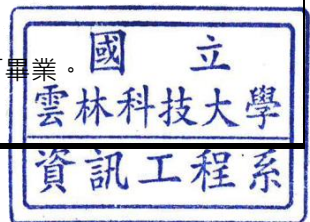 畢業。
國立
雲林科技大學
資訊工程系